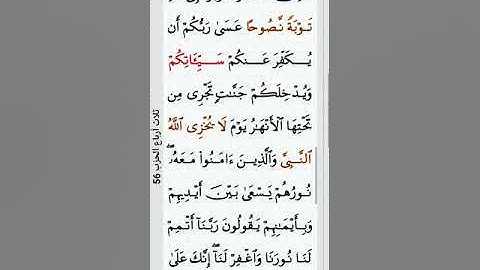 تَوْبَةً نَّصُوحًا عَسَىٰ رَبُّكُمْ أَن
يُكَفِّرَ عَنكُمْ سَيِّـَٔاتِكُمْ
وَيُدْخِلَكُمْ جَنَّٰتٍ تَجْرِى مِن
تَحْتِهَا ٱلْأَنْهَٰرُ يَوْمَ لَا يُخْزِى ٱللَّهُ
ٱلنَّبِىَّ وَٱلَّذِينَ ءَامَنُوا۟ مَعَهُۥ ۖ
نُورُهُمْ يَسْعَىٰ بَيْنَ أَيْدِيهِمْ
وَبِأَيْمَٰنِهِمْ يَقُولُونَ رَبَّنَآ أَتْمِمْ
لَنَا نُورَنَا وَٱغْفِرْ لَنَآ ۖ إِنَّكَ عَلَىٰ
ثلاث أرباع الحزب 56